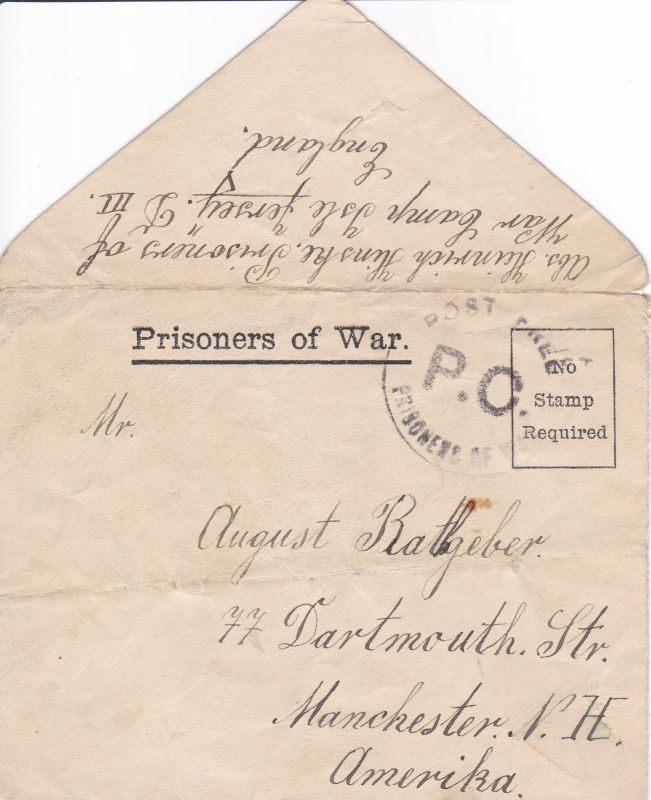 Abs. Heinrich Hinske. Prisoners of
War Camp Isle Jersey. D III.
England.
Prisoners of War.
POST FREE
P.C.
PRISONERS OF
No
Stamp
Required
Mr.
August Rathgeber.
77 Dartmouth. Str.
Manchester. N. H.
Amerika.